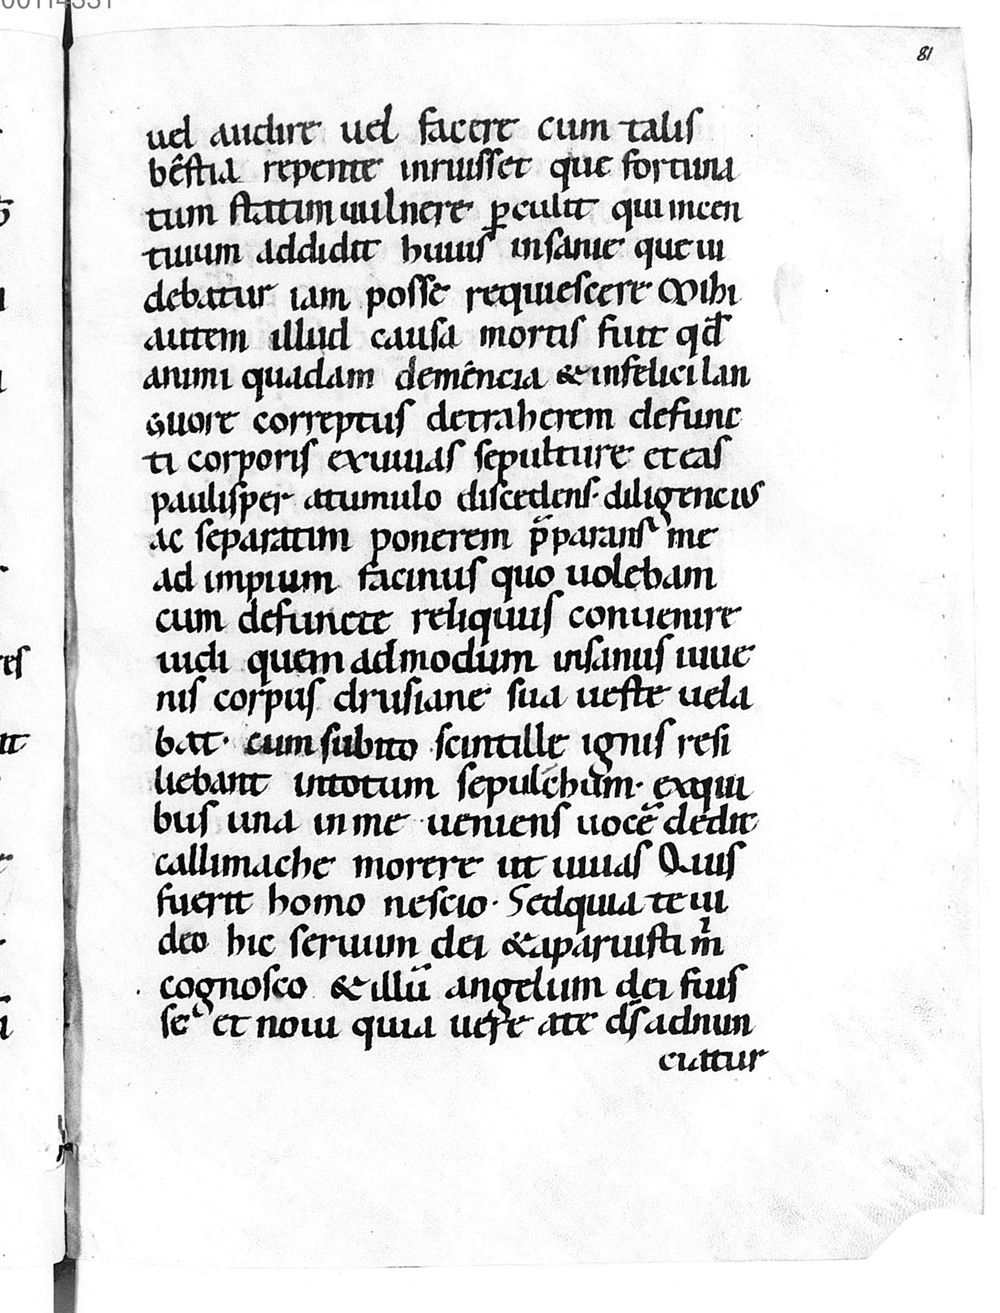 81
uel audire uel facere cum talis
bêstia repente inruisset que fortuna
tum statim uulnere ꝑculit qui incen
tiuum addidit huius insanie que ui
debatur iam posse requiescere Mihi
autem illud causa mortis fuit qđ
animi quadam demência & infelici lan
guore correptus detraherem defunc
ti corporis exuuias sepulture et eas
paulisper atumulo discedens· diligencius
ac separatim ponerem p̄parans me
ad impium facinus quo uolebam
cum defuncte reliquiis conuenire
uidi quem ad modum insanus iuue
nis corpus drusiane sua ueste uela
bat· cum subito scintille ignis resi
liebant intotum sepulchum· exqui
bus una in me ueniens uocē dedit
callimache morere ut uiuas Quis
fuerit homo nescio· Sed quia te ui
deo hic seruum dei & aparuisti m̄
cognosco & illū angelum dei fuis
se et noui quia uere a te ds̄ adnun
ciatur